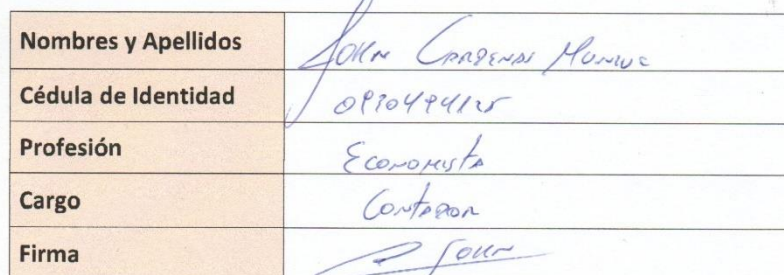 Nombres y Apellidos John Cardenas
Cédula de Identidad
Profesión Economista
Cargo Contador
Firma John